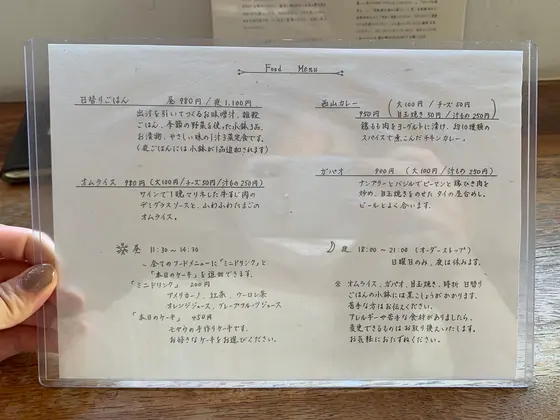 Food Menu
日替りごはん 昼 980円 / 夜 1,100円
出汁を引いてつくるお味噌汁、雑穀
ごはん、季節の野菜を使った小鉢3品、
お漬物、やさしい味の1汁3菜定食です。
(夜ごはんには小鉢が1品追加されます)
オムライス 980円 (大100円 / チーズ50円 / 汁もの250円)
ワインで1晩マリネした牛すじ肉の
デミグラスソースと、ふわふわたまごの
オムライス。
昼 11:30〜14:30
〜全てのフードメニューに「ミニドリンク」と
「本日のケーキ」を追加できます。
「ミニドリンク」 200円
アメリカーノ、紅茶、ウーロン茶
オレンジジュース、グレープフルーツジュース
「本日のケーキ」 450円
モヤウの手作りケーキです。
お好きなケーキをお選びください。
西山カレー 950円 (大100円 / チーズ50円
目玉焼き50円 / 汁もの250円)
鶏もも肉をヨーグルトに漬け、約10種類の
スパイスで煮こんだチキンカレー。
ガパオ 900円 (大100円 / 汁もの250円)
ナンプラーとバジルでピーマンと鶏ひき肉を
炒め、目玉焼きをのせたタイの屋台めし。
ビールとよく合います。
夜 18:00〜21:00 (オーダーストップ)
日曜日のみ、夜は休みます。
※ オムライス、ガパオ、目玉焼き、時折 日替り
ごはんの小鉢には黒こしょうがかかります。
苦手な方はお伝えください。
アレルギーや苦手な食材がありましたら、
変更できるものはお取り換えいたします。
お気軽におたずねください。